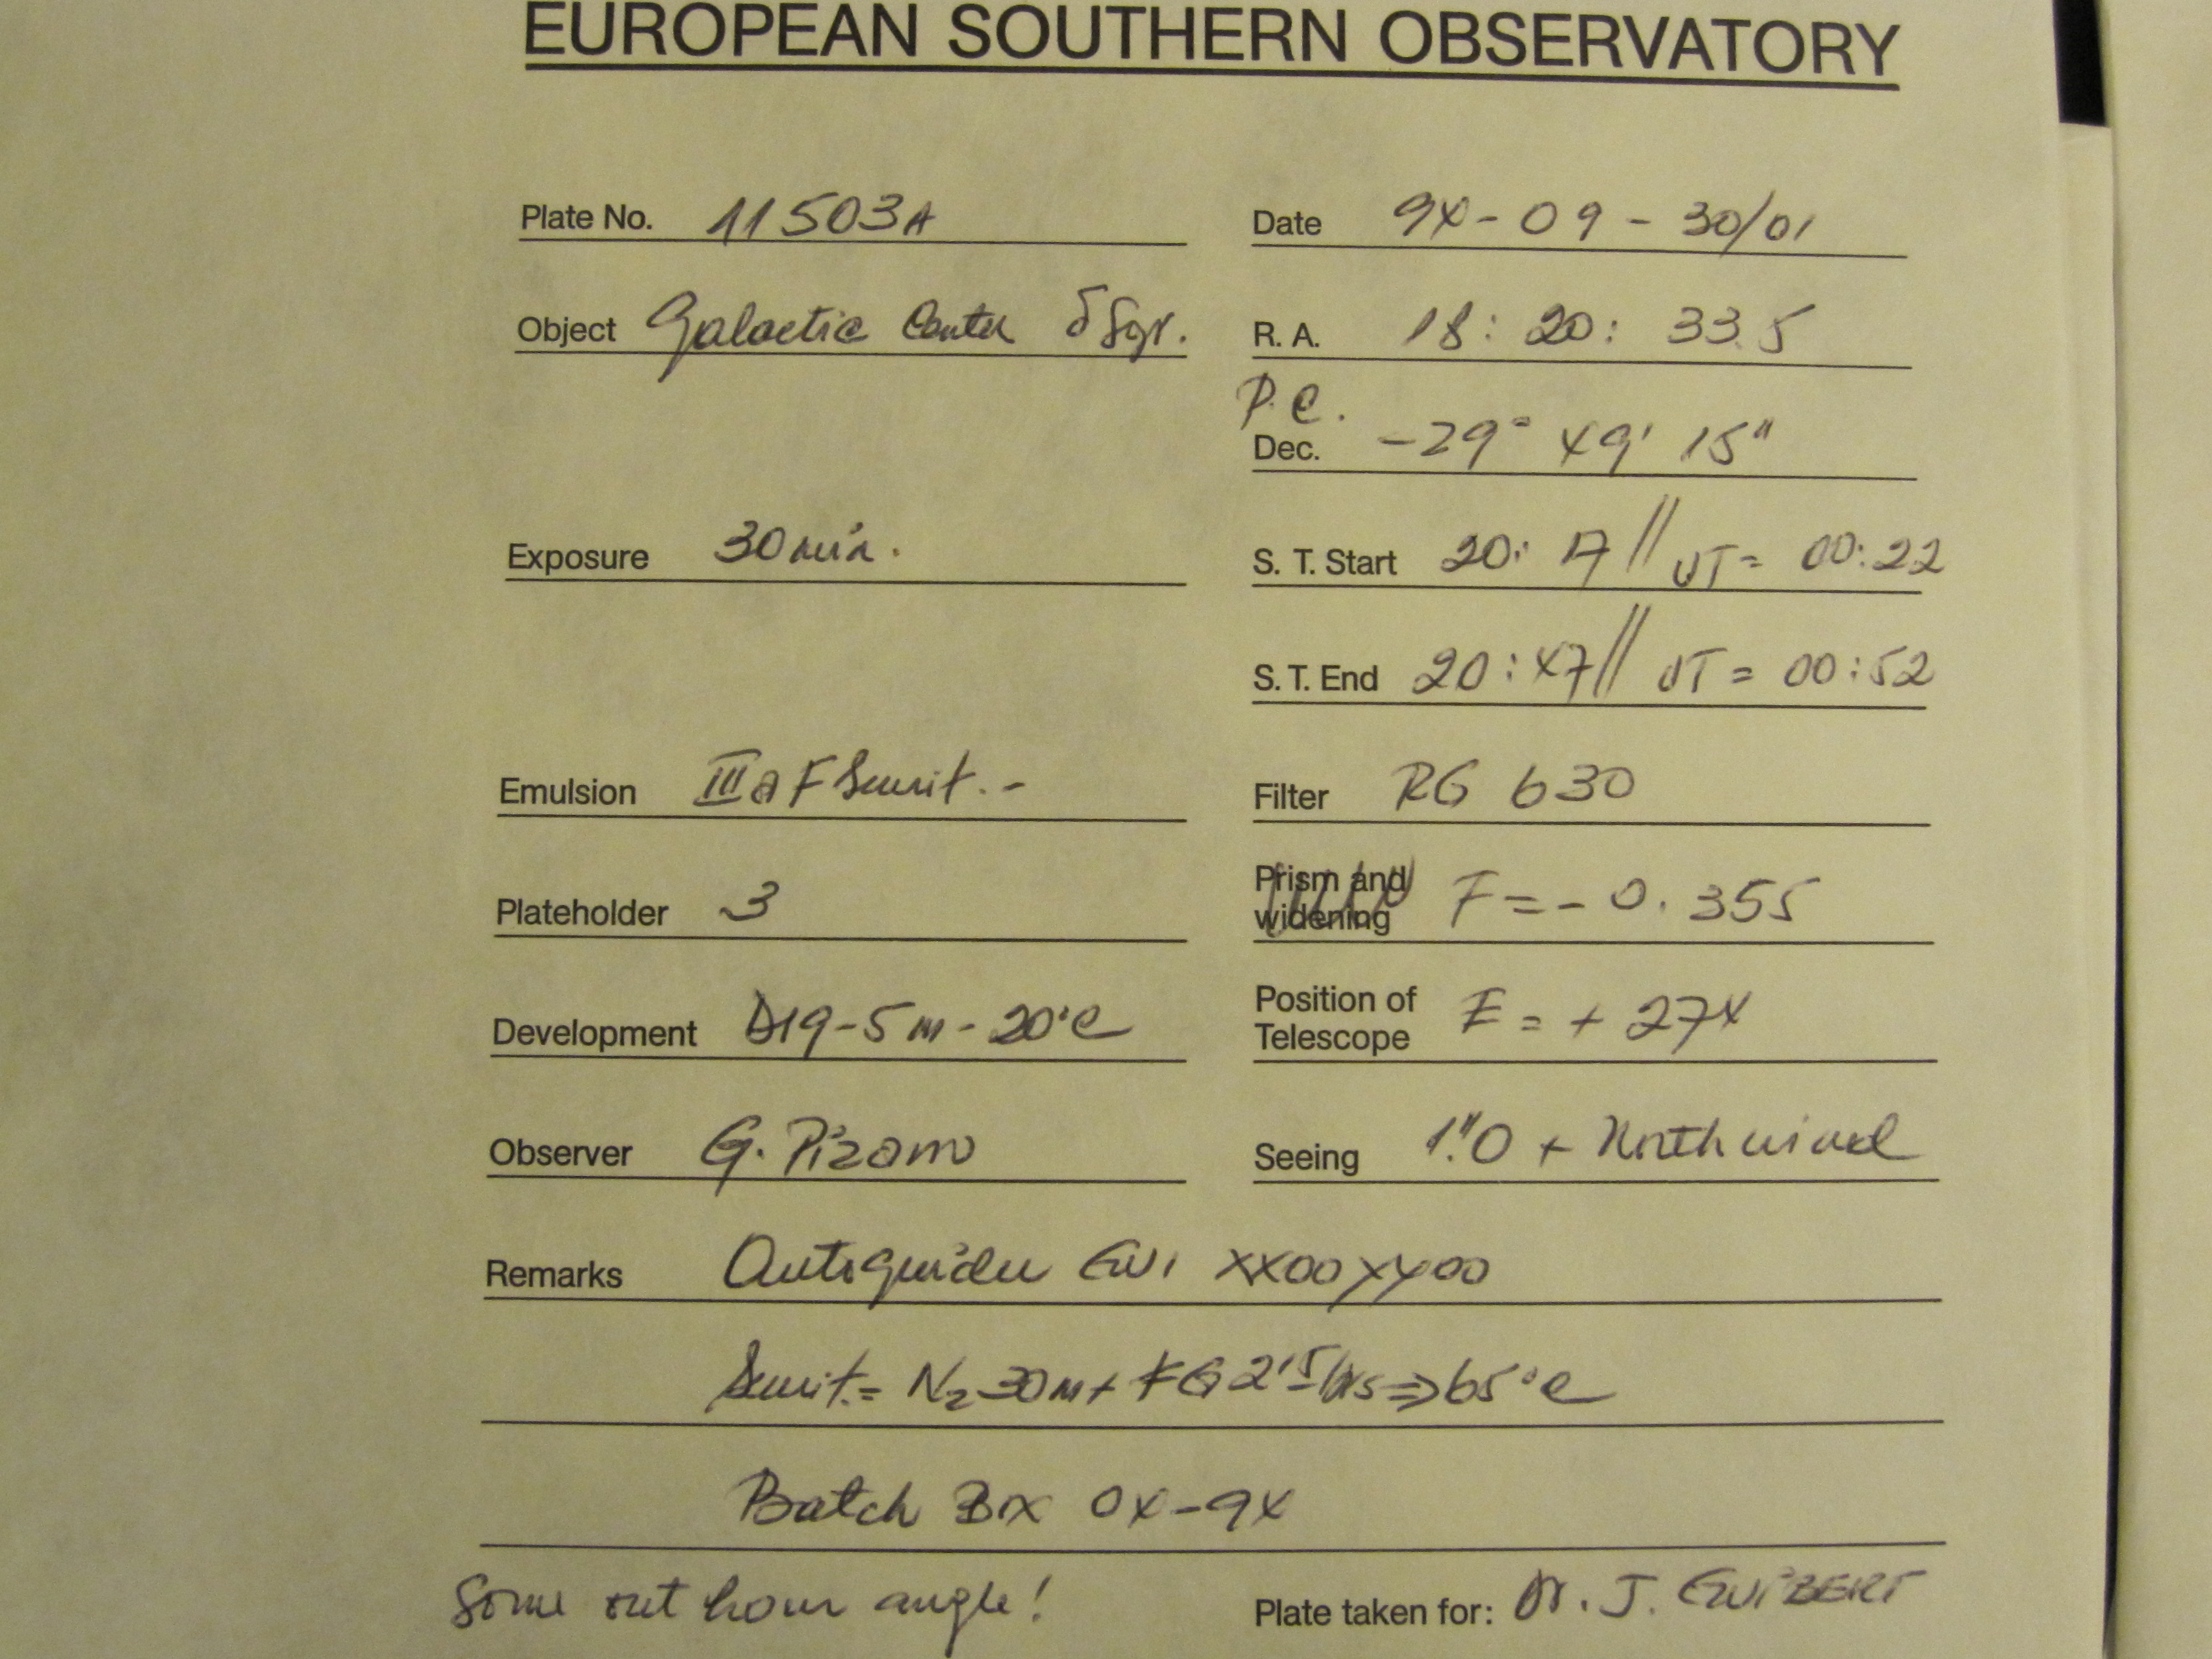 EUROPEAN SOUTHERN OBSERVATORY
Plate No. 11503A
Date 94-09-30/01
Object Galactic Center δ Sgr.
R. A. 18: 20: 33.5
P.C.
Dec. -29° 49' 15"
Exposure 30 min.
S. T. Start 20: 17 // UT= 00:22
S. T. End 20:47 // UT = 00:52
Emulsion III a F Sensit. -
Filter RG 630
Plateholder 3
Prism and widening F = - 0. 355
Development D19-5m-20°C
Position of Telescope E = + 274
Observer G. Pizarro
Seeing 1".0 + North wind
Remarks Autoguider XX00 YY00
Sensit.= N2 30m+ FG 2'5 hrs => 65°C
Batch 04-94
Some out hour angle!
Plate taken for: Dr. J. GUIBERT